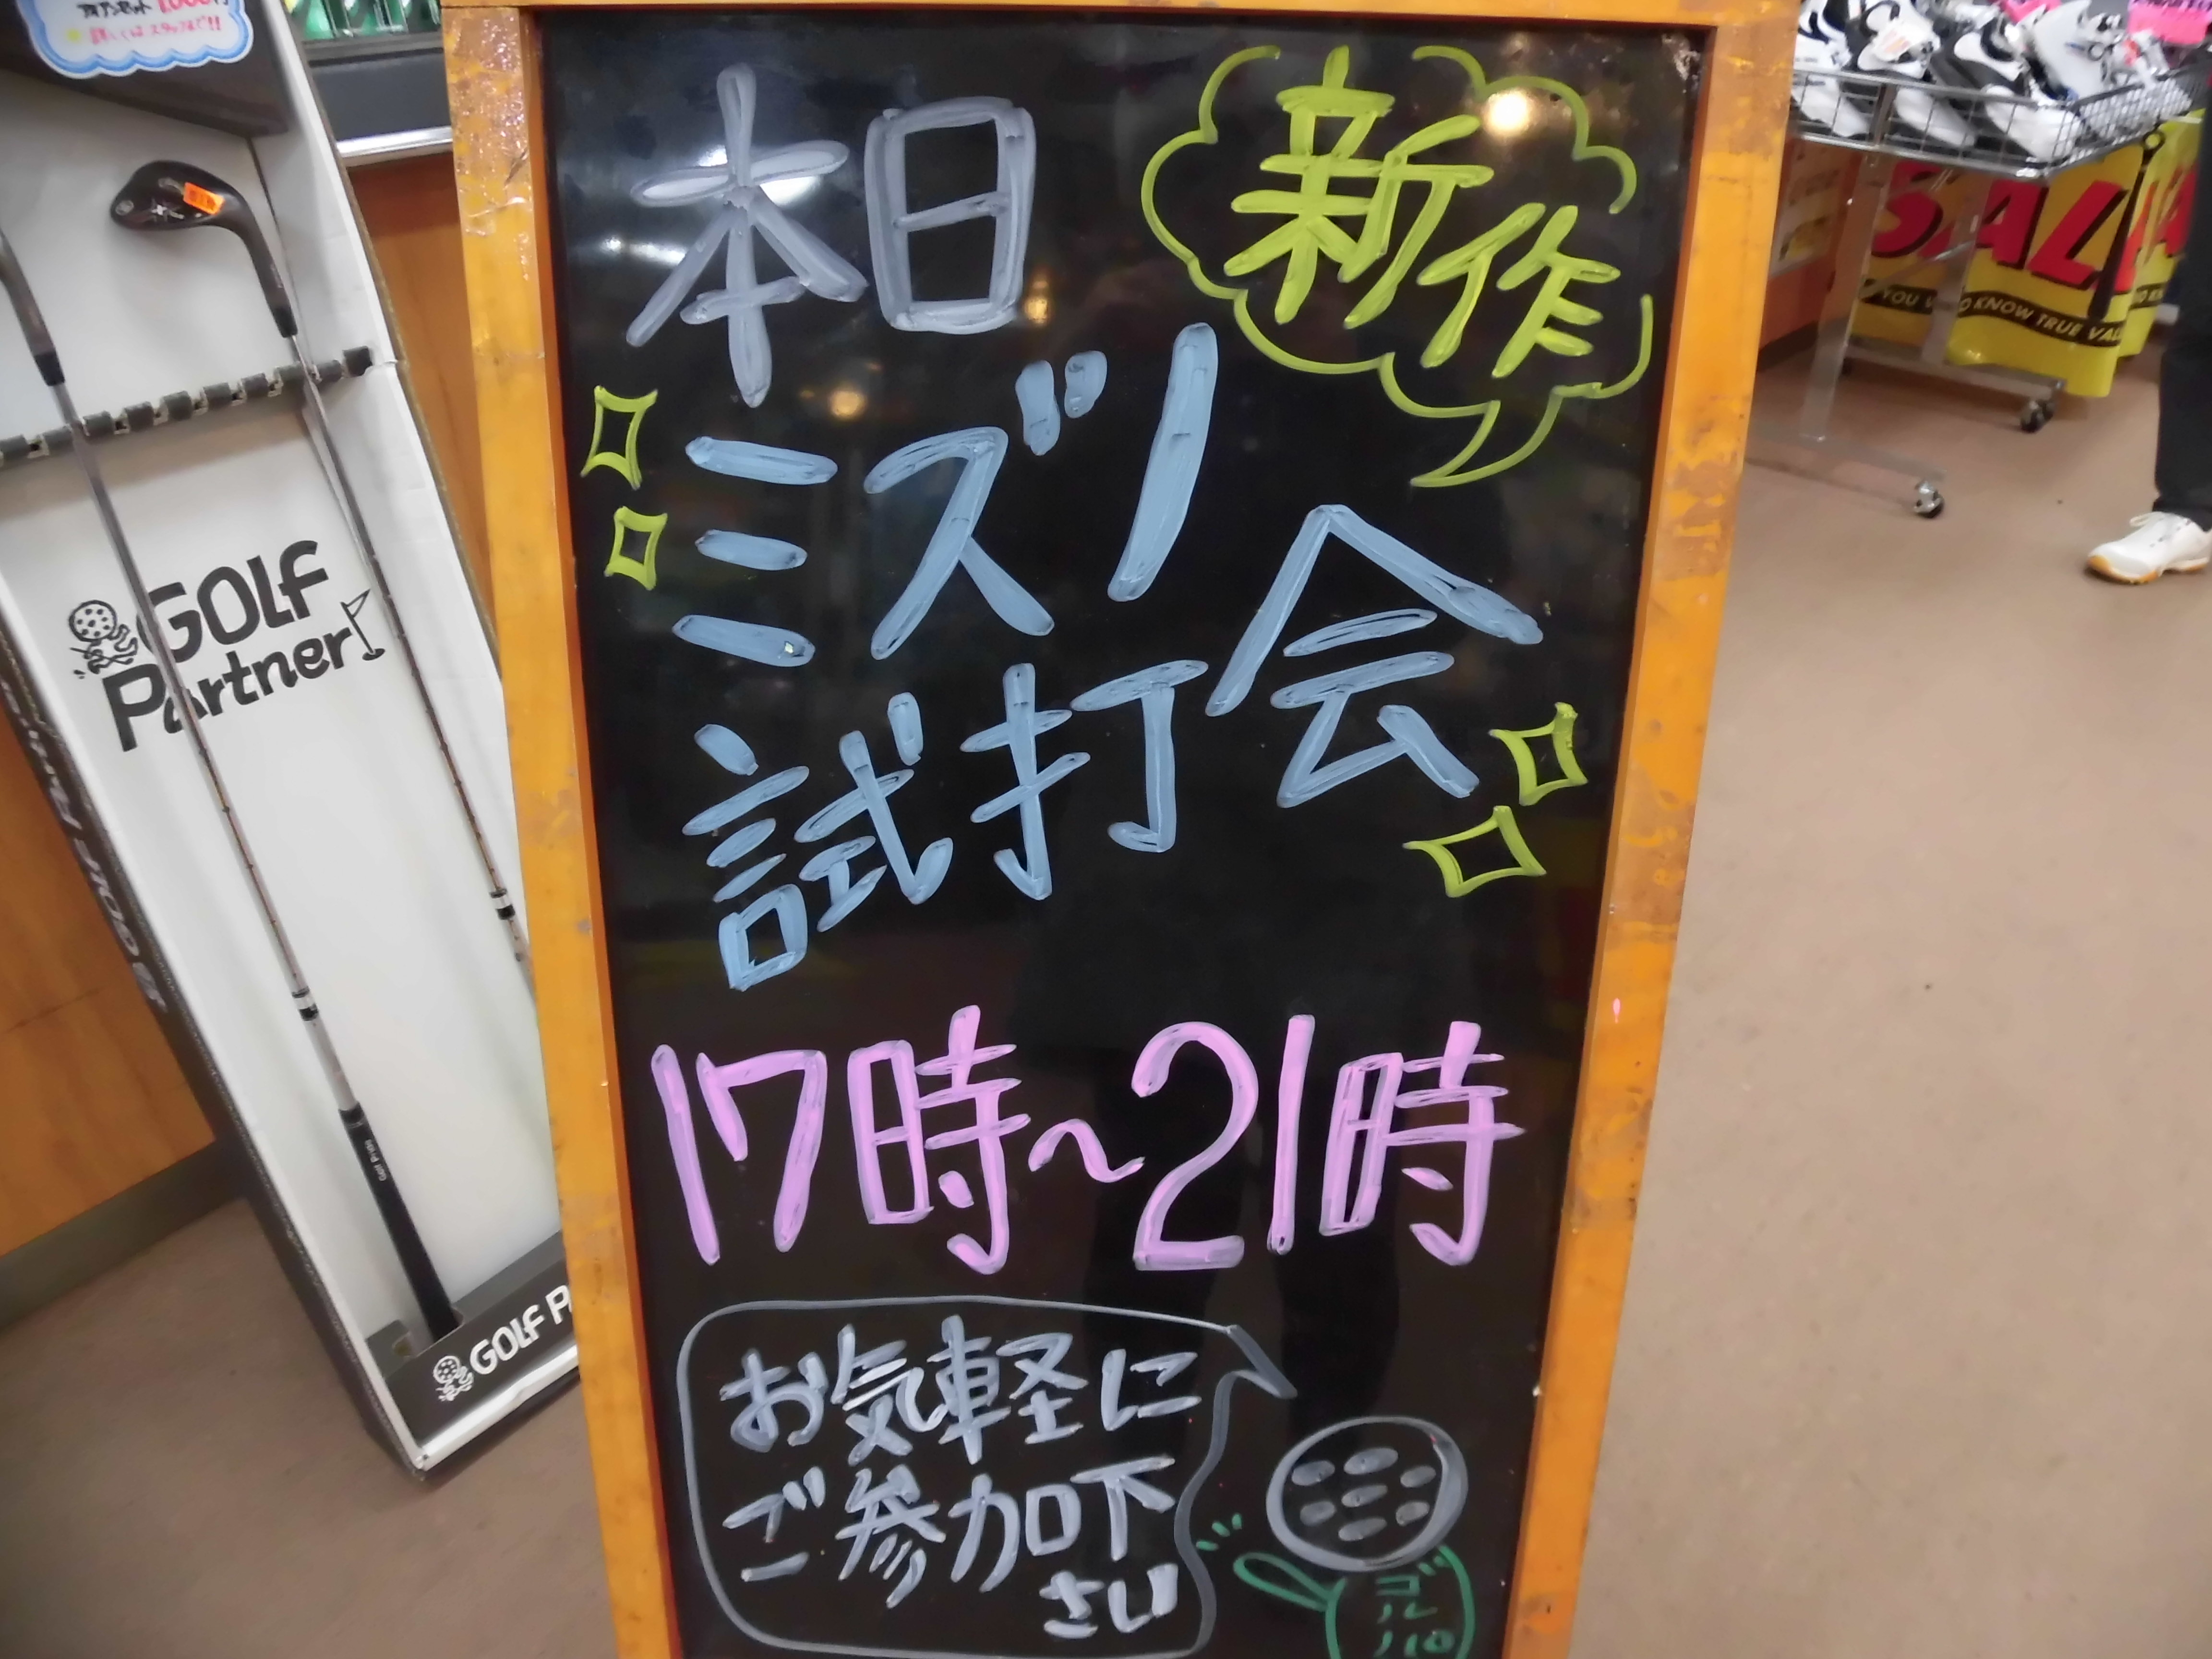 詳しくはスタッフまで!!
本日
新作
ミズノ
試打会
17時~21時
お気軽に
ご参加下
さい
ゴ
ル
パ
GOLF
Partner
GOLF P
SALE
KNOW TRUE VAL